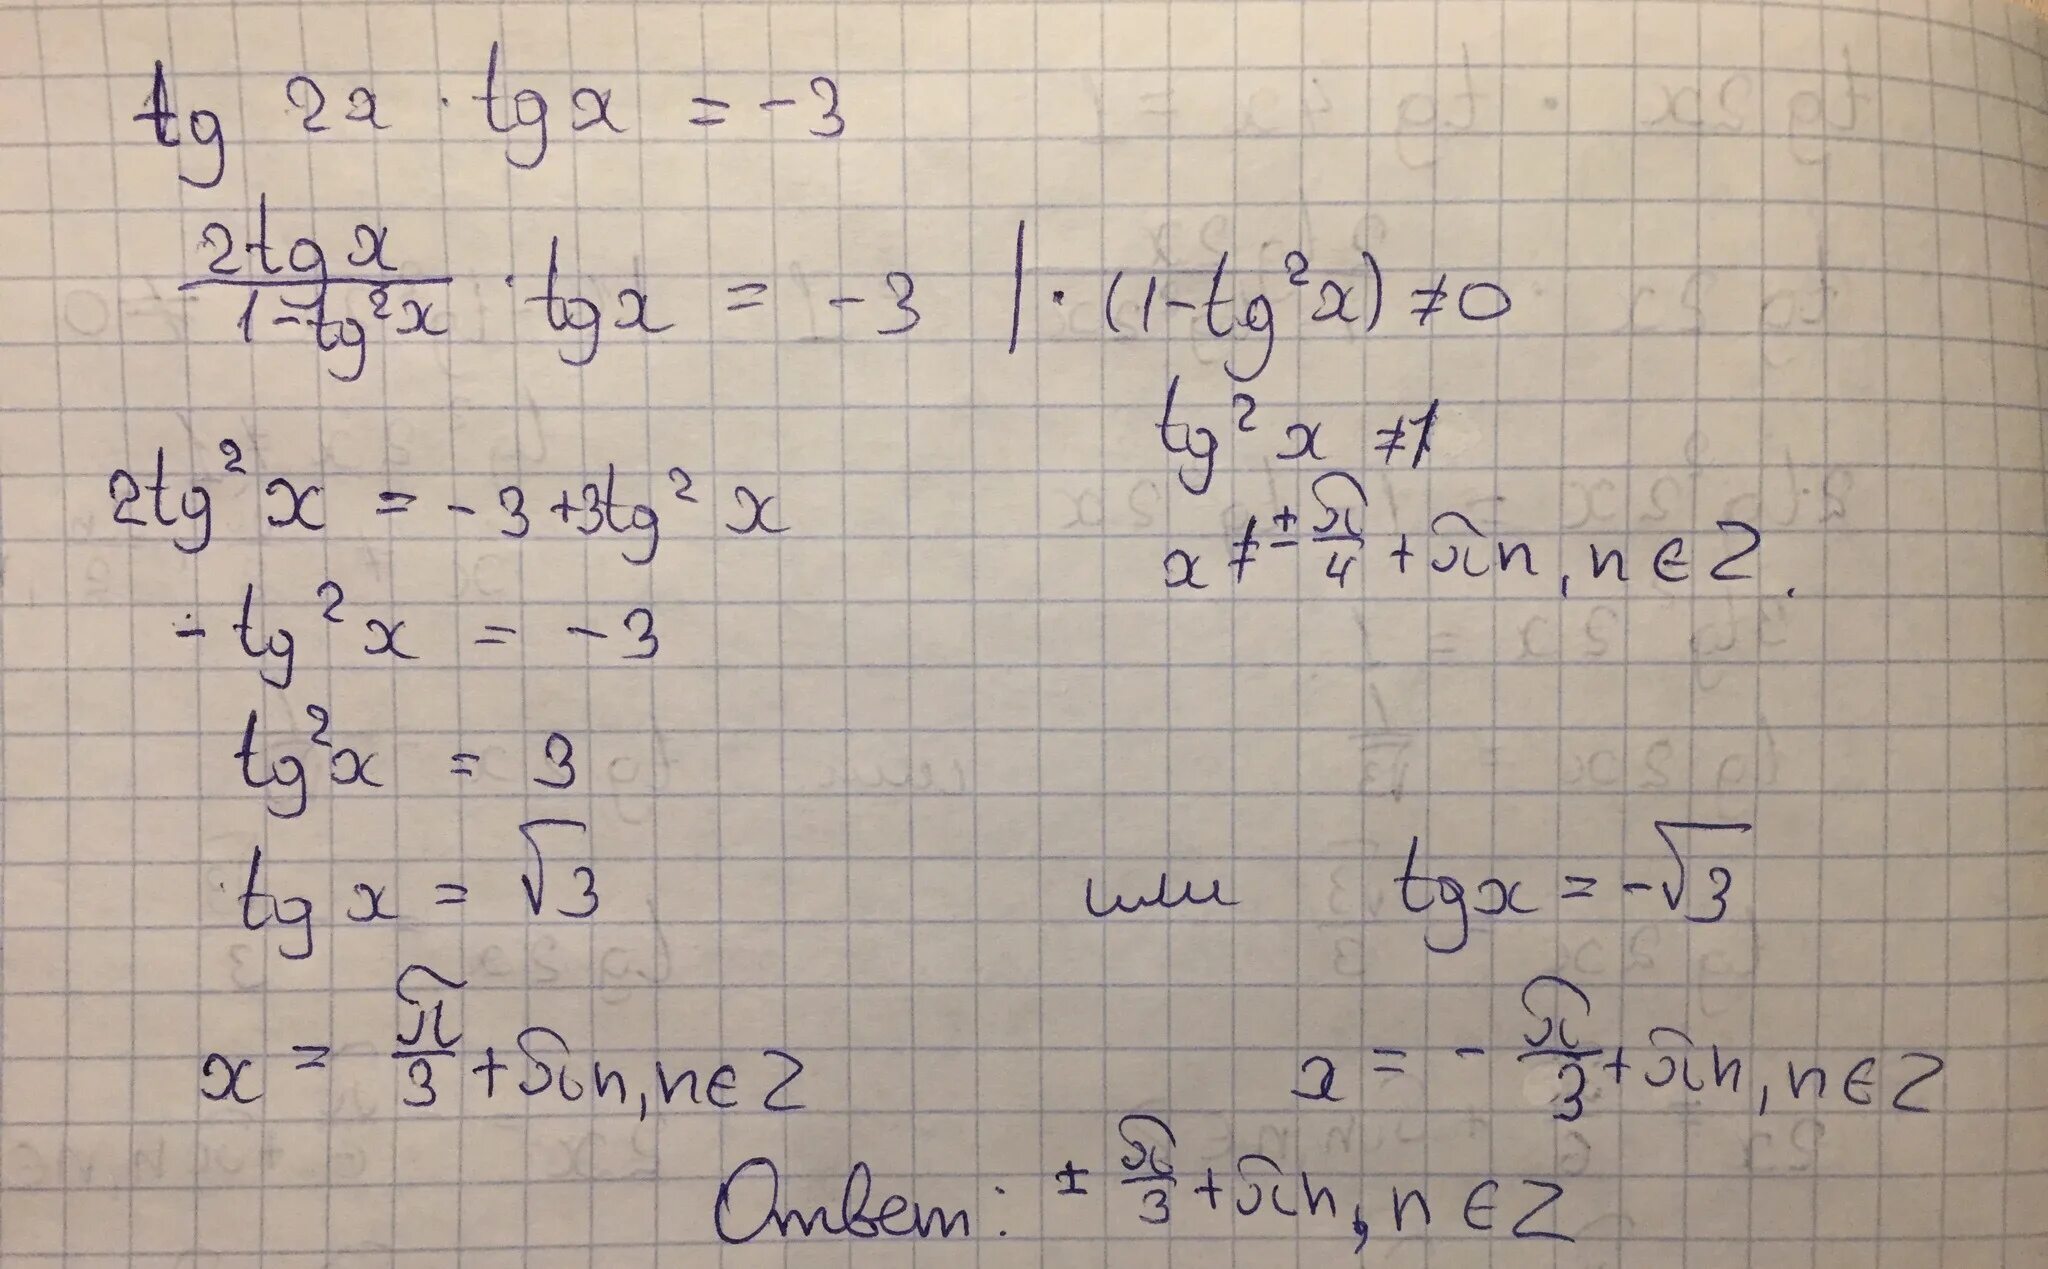 tg 2x · tg x = -3
2tg x / 1-tg²x · tg x = -3 | · (1-tg²x) ≠ 0
tg² x ≠ 1
2tg² x = -3+3tg² x
x ≠ ± π/4 + πn, n ∈ Z.
-tg² x = -3
tg² x = 3
tg x = √3 или tg x = -√3
x = π/3 + πn, n ∈ Z x = - π/3 + πn, n ∈ Z
Ответ: ± π/3 + πn, n ∈ Z